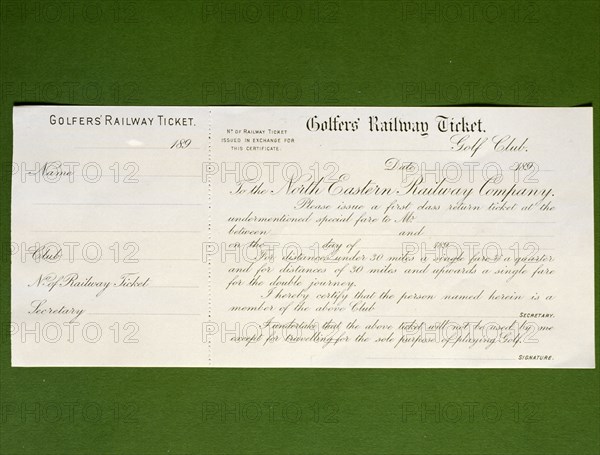 GOLFERS' RAILWAY TICKET.
189
Name
Club
No. of Railway Ticket
Secretary
No. OF RAILWAY TICKET
ISSUED IN EXCHANGE FOR
THIS CERTIFICATE.
Golfers' Railway Ticket.
Golf Club.
Date 189
To the North Eastern Railway Company.
Please issue a first class return ticket at the
undermentioned special fare to Mr
between and
on the day of 189
For distances under 30 miles a single fare & a quarter
and for distances of 30 miles and upwards a single fare
for the double journey.
I hereby certify that the person named herein is a
member of the above Club
SECRETARY.
I undertake that the above ticket will not be used by me
except for travelling for the sole purpose of playing Golf.
SIGNATURE.
PHOTO 12